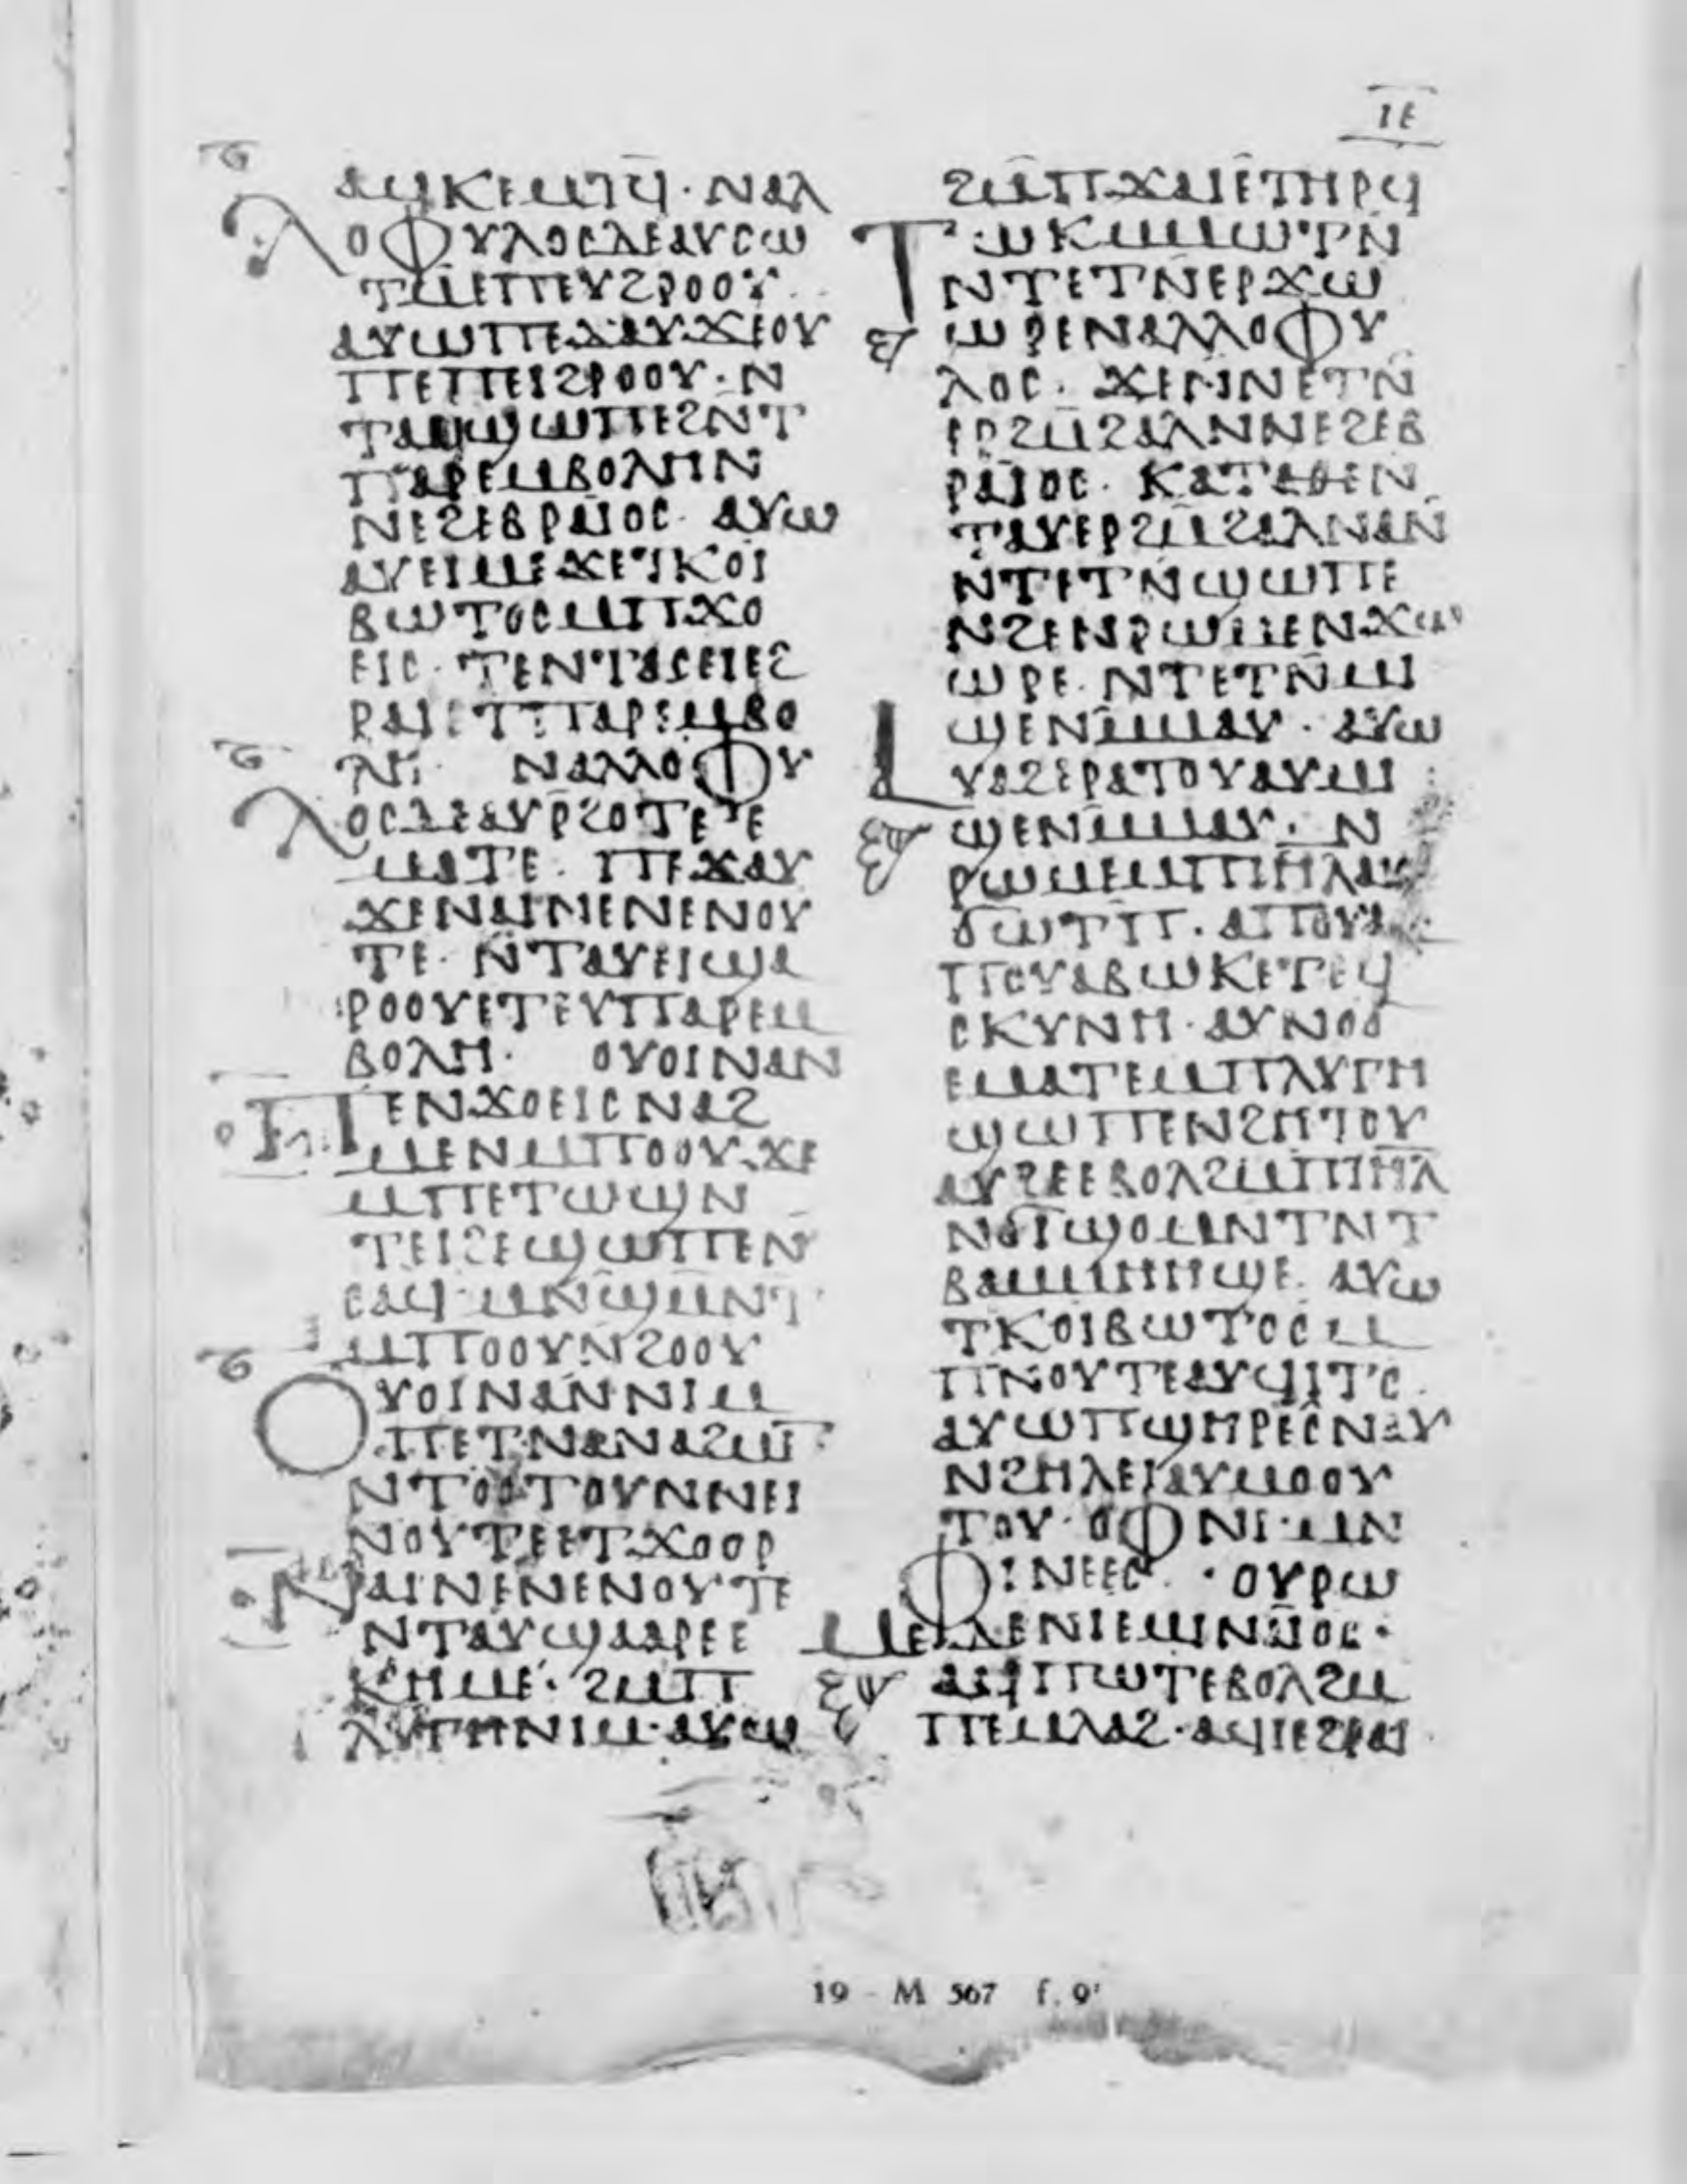 ⲓⲉ
ⲁϥⲕⲉⲙⲧϥ · ⲛⲁⲗ
ⲗⲟⲫⲩⲗⲟⲥⲇⲉⲁⲩⲥⲱ
ⲧⲙ̄ⲉⲡⲉⲩϩⲣⲟⲟⲩ
ⲁⲩⲱⲡⲉϫⲁⲩϫⲉⲟⲩ
ⲡⲉⲡⲉⲓϩⲣⲟⲟⲩ · ⲛ
ⲧⲁϥϣⲱⲡⲉϩⲛⲧ
ⲡⲁⲣⲉⲙⲃⲟⲗⲏⲛ
ⲛⲉϩⲉⲃⲣⲁⲓⲟⲥ · ⲁⲩⲱ
ⲁⲩⲉⲓⲙⲉϫⲉⲧⲕⲟⲓ
ⲃⲱⲧⲟⲥⲙⲡϫⲟ
ⲉⲓⲥ · ⲧⲉⲛⲧⲁⲥⲉⲓⲉϩ
ⲣⲁⲓⲉⲧⲡⲁⲣⲉⲙⲃⲟ
ⲗⲏ · ⲛⲁⲗⲗⲟⲫⲩ
ⲗⲟⲥⲇⲉⲁⲩⲣϩⲟⲧⲉⲧⲉ
ⲙⲁⲧⲉ · ⲡⲉϫⲁⲩ
ϫⲉⲛⲁⲓⲛⲉⲛⲉⲛⲟⲩ
ⲧⲉ · ⲛ̄ⲧⲁⲩⲉⲓϣⲁ
ⲣⲟⲟⲩⲉⲧⲉⲩⲡⲁⲣⲉⲙ
ⲃⲟⲗⲏ · ⲟⲩⲟⲓⲛⲁⲛ
ⲡⲉⲛϫⲟⲉⲓⲥⲛⲁϩ
ⲙⲉⲛⲙⲡⲟⲟⲩ · ϫⲉ
ⲙⲡⲉⲧⲱϣⲛ
ⲧⲉⲓϩⲉϣⲱⲡⲉⲛ
ⲥⲁϥ · ⲙⲛ̄ϣⲙ̄ⲛⲧ
ⲙⲡⲟⲟⲩⲛϩⲟⲟⲩ
ⲟⲩⲟⲓⲛⲁⲛⲛⲓⲙ
ⲡⲉⲧⲛⲁⲛⲁϩⲙⲛ̄
ⲛⲧⲟⲟⲧⲟⲩⲛⲛⲉⲓ
ⲛⲟⲩⲧⲉⲉⲧϫⲟⲟⲣ
ⲛⲁⲓⲛⲉⲛⲉⲛⲟⲩⲧⲉ
ⲛⲧⲁⲩϣⲁⲁⲣⲉⲉ
ⲕⲏⲙⲉ · ϩⲙⲡ
ⲗⲩⲅⲏⲛⲓⲙ · ⲁⲩⲱ
ϩⲙ̄ⲡϫⲁⲓⲉⲧⲏⲣϥ
ⲧⲱⲕⲙⲙⲱⲧⲛ̄
ⲛⲧⲉⲧⲛ̄ⲉⲣϫⲱ
ⲱⲣⲉⲛⲁⲗⲗⲟⲫⲩ
ⲗⲟⲥ · ϫⲉⲛⲛⲉⲧⲛ̄
ⲉⲣϩⲙ̄ϩⲁⲗⲛⲛⲉϩⲉⲃ
ⲣⲁⲓⲟⲥ · ⲕⲁⲧⲁⲑⲉⲛ
ⲧⲁⲩⲉⲣϩⲙ̄ϩⲁⲗⲛⲁⲛ
ⲛⲧⲉⲧⲛ̄ϣⲱⲡⲉ
ⲛϩⲉⲛⲣⲱⲙⲉⲛϫⲱ
ⲱⲣⲉ · ⲛⲧⲉⲧⲛ̄ⲙⲓ
ϣⲉⲛⲙ̄ⲙⲁⲩ · ⲁⲩⲱ
ⲁⲩⲁϩⲉⲣⲁⲧⲟⲩⲁⲩⲙⲓ
ϣⲉⲛⲙ̄ⲙⲁⲩ · ⲛ
ⲣⲱⲙⲉⲙⲡⲓⲏⲗⲁⲩ
ϭⲱⲧⲡ · ⲁⲡⲟⲩⲁ
ⲡⲟⲩⲁⲃⲱⲕⲉⲧⲉϥ
ⲥⲕⲩⲛⲏ · ⲁⲩⲛⲟϭ
ⲉⲙⲁⲧⲉⲙⲡⲗⲩⲅⲏ
ϣⲱⲡⲉⲛϩⲏⲧⲟⲩ
ⲁⲩϩⲉⲉⲃⲟⲗϩⲙⲡⲓⲏⲗ
ⲛϭⲓϣⲟⲙⲛⲧⲛⲧ
ⲃⲁⲙⲙⲏⲏϣⲉ · ⲁⲩⲱ
ⲧⲕⲟⲓⲃⲱⲧⲟⲥⲙ
ⲡⲛⲟⲩⲧⲉⲁⲩϥⲓⲧⲥ ·
ⲁⲩⲱⲡϣⲏⲣⲉⲥⲛⲁⲩ
ⲛϩⲏⲗⲉⲓⲁⲩⲙⲟⲟⲩ
ⲧⲟⲩ · ⲟⲫⲛⲓ · ⲙⲛ
ⲫⲓⲛⲉⲉⲥ · ⲟⲩⲣⲱ
ⲙⲉⲇⲉⲛⲓⲉⲙⲓⲛⲛ̄ⲟⲥ ·
ⲁϥⲡⲱⲧⲉⲃⲟⲗϩⲙ
ⲡⲉⲙⲗⲁϩ · ⲁϥⲓⲉϩⲣⲁⲓ
19 - M 567 f. 9ʳ